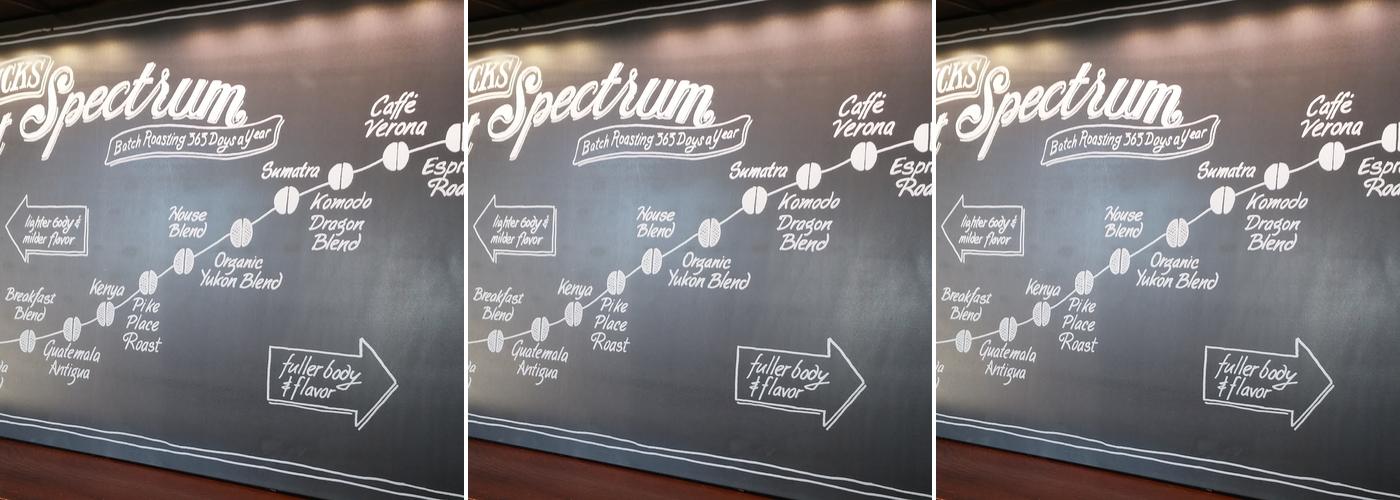 CKS
Spectrum
Batch Roasting 365 Days a Year
Caffè
Verona
Espr
Roa
Sumatra
Komodo
Dragon
Blend
lighter body &
milder flavor
House
Blend
Organic
Yukon Blend
Kenya
Pike
Place
Roast
Breakfast
Blend
Guatemala
Antigua
fuller body
& flavor
CKS
Spectrum
Batch Roasting 365 Days a Year
Caffè
Verona
Espr
Roa
Sumatra
Komodo
Dragon
Blend
lighter body &
milder flavor
House
Blend
Organic
Yukon Blend
Kenya
Pike
Place
Roast
Breakfast
Blend
Guatemala
Antigua
fuller body
& flavor
CKS
Spectrum
Batch Roasting 365 Days a Year
Caffè
Verona
Esp
Ro
Sumatra
Komodo
Dragon
Blend
lighter body &
milder flavor
House
Blend
Organic
Yukon Blend
Kenya
Pike
Place
Roast
Breakfast
Blend
Guatemala
Antigua
fuller body
& flavor